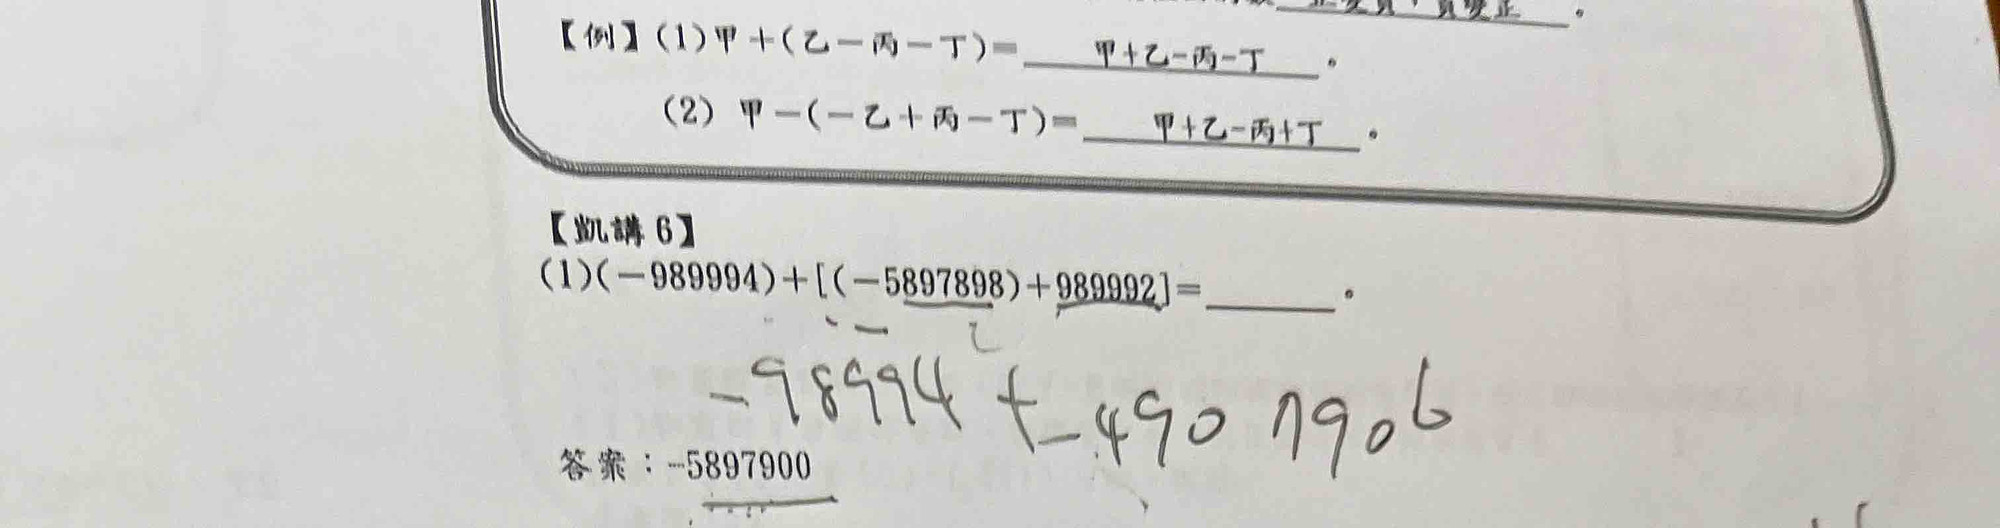 正變負，負變正。
【例】(1)甲＋(乙－丙－丁)＝甲+乙-丙-丁。
(2) 甲－(－乙＋丙－丁)＝甲+乙-丙+丁。
【凱講 6】
(1)(－989994)＋[(－5897898)＋989992]＝______。
-98994 + -4907906
答案：-5897900